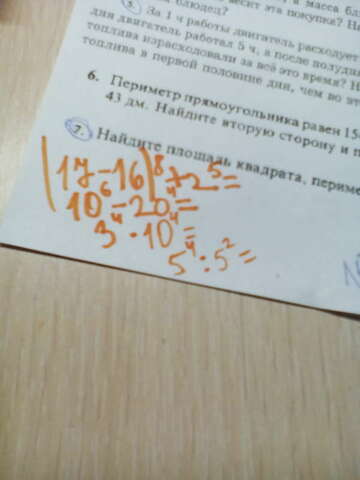 весит эта покупка? На
блюдец?
5. За 1 ч работы двигатель расходует
дня двигатель работал 5 ч, а после полудня
топлива израсходовали за всё это время? Н
топлива в первой половине дня, чем во
6. Периметр прямоугольника равен
43 дм. Найдите вторую сторону и п
7. Найдите площадь квадрата, периме
|17-16|⁸+2⁵=
10⁶-20⁴=
3⁴·10⁴=
5⁴:5²=